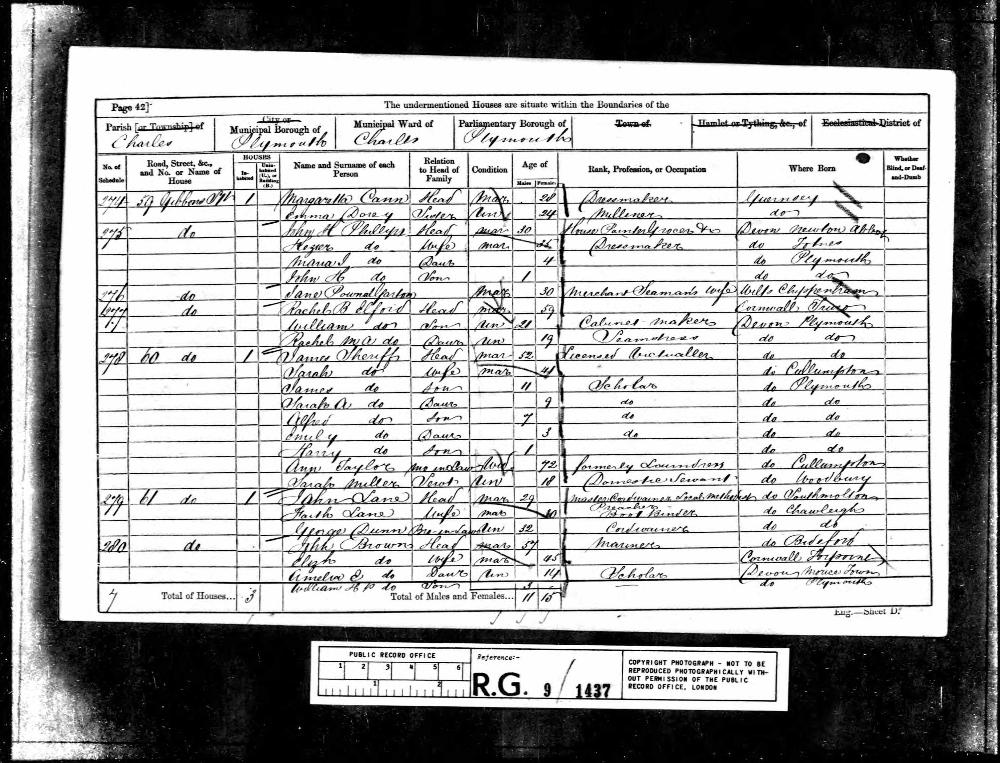 Page 42] The undermentioned Houses are situate within the Boundaries of the
Parish [or Township] of Charles
City or Municipal Borough of Plymouth
Municipal Ward of Charles
Parliamentary Borough of Plymouth
Town of
Hamlet or Tything, &c., of
Ecclesiastical District of
No. of Schedule
Road, Street, &c., and No. or Name of House
HOUSES
Inhabited
Uninhabited (U.), or Building (B.)
Name and Surname of each Person
Relation to Head of Family
Condition
Age of
Males Females
Rank, Profession, or Occupation
Where Born
Whether Blind, or Deaf-and-Dumb
274 59 Gibbons St 1 Margaretta Cann Head Mar 28 Dressmaker Guernsey
Emma Dorey Sister Un 24 Milliner do
275 do John H Phillips Head mar 30 House Painter Grocer &c Devon Newton Abbot
do Wife mar Dressmaker do Totnes
Maria J do Daur 4 do Plymouth
John H do Son 1 do do
276 do Jane Mar 30 Merchant Seaman's Wife Wilts Chippenham
277 do Rachel B Elford Head mar 59 Cornwall Truro
William do Son Un 21 Cabinet maker Devon Plymouth
Rachel M A do Daur Un 19 Seamstress do do
278 60 do 1 James Sheriff Head mar 52 Licensed Victualler do do
Sarah do Wife mar 41 do Cullumpton
James do Son 11 Scholar do Plymouth
Sarah A do Daur 9 do do do
Alfred do Son 7 do do do
Emily do Daur 3 do do do
Harry do Son 1 do do
Ann Taylor Mo in Law Wid 72 formerly Laundress do Cullumpton
Sarah Miller Servt Un 18 Domestic Servant do Woodbury
279 61 do 1 John Lane Head Mar 29 Master Cordwainer Local Methodist Preacher do Southmolton
Faith Lane Wife mar Boot Binder do Chawleigh
George Dunn Bro-in-Law Un 32 Cordwainer do do
280 do John Brown Head mar 57 Mariner do Bideford
Eliza do Wife mar 45 Cornwall Torpoint
Amelia E do Daur Un 14 Scholar Devon Morice Town
William H P do Son 3 do Plymouth
7 Total of Houses... 3 Total of Males and Females... 11 15
Eng.—Sheet D.
PUBLIC RECORD OFFICE
1 2 3 4 5 6
1 2
Reference:-
R.G. 9 / 1437
COPYRIGHT PHOTOGRAPH - NOT TO BE
REPRODUCED PHOTOGRAPHICALLY WITH-
OUT PERMISSION OF THE PUBLIC
RECORD OFFICE, LONDON